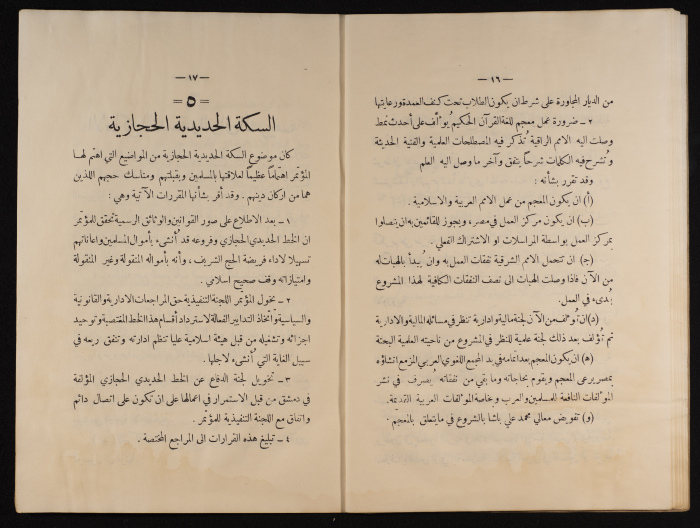 — ١٦ —
من الديار المجاورة على شرط ان يكون الطلاب تحت كنف العمدة ورعايتها
٢ – ضرورة عمل معجم للغة القرآن الحكيم يُؤلف على أحدث نمط
وصلت اليه الامم الراقية تُذكر فيه المصطلحات العلمية والفنية الحديثة
وتُشرح فيه الكلمات شرحاً يتفق وآخر ما وصل اليه العلم
وقد تقرر بشأنه :
(أ) ان يكون المعجم من عمل الامم العربية والاسلامية .
(ب) ان يكون مركز العمل في مصر، ويجوز للقائمين به ان يتصلوا
بمركز العمل بواسطة المراسلات او الاشتراك الفعلي .
(ج) ان تتحمل الامم الشرقية نفقات العمل به وان يُبدأ بالهبات له
من الآن فاذا وصلت الهبات الى نصف النفقات الكافية لهذا المشروع
بُدىء في العمل .
(د) ان تُؤلف من الآن لجنة مالية وادارية تنظر في مسائله المالية والادارية
ثم تؤلف بعد ذلك لجنة علمية للنظر في المشروع من ناحيته العلمية البحتة
(ه) ان يكون المعجم بعد اتمامه في يد المجمع اللغوي العربي المزمع انشاؤه
بمصر يرعى المعجم ويقوم بحاجاته وما بقي من نفقاته يصرف في نشر
المؤلفات النافعة للمسلمين والعرب وخاصة المؤلفات العربية القديمة .
(و) تفويض معالي محمد علي باشا بالشروع في ما يتعلق بالمعجم .
— ١٧ —
= ٥ =
السكة الحديدية الحجازية
كان موضوع السكة الحديدية الحجازية من المواضيع التي اهتم لها
المؤتمر اهتماماً عظيماً لعلاقتها بالمسلمين وبقبلتهم ومناسك حجهم اللذين
هما من اركان دينهم . وقد أقر بشأنها المقررات الآتية وهي :
١ – بعد الاطلاع على صور القوانين والوثائق الرسمية تحقق للمؤتمر
ان الخط الحديدي الحجازي وفروعه قد أُنشىء بأموال المسلمين واعاناتهم
تسهيلا لاداء فريضة الحج الشريف ، وأنه بأمواله المنقولة وغير المنقولة
وامتيازاته وقف صحيح اسلامي .
٢ – يخول المؤتمر اللجنة التنفيذية حق المراجعات الادارية والقانونية
والسياسية واتخاذ التدابير الفعالة لاسترداد أقسام هذا الخط المغتصبة وتوحيد
اجزائه وتشغيله من قبل هيئة اسلامية عليا تنظم ادارته وتنفق ريعه في
سبيل الغاية التي أُنشىء لاجلها .
٣ – تخويل لجنة الدفاع عن الخط الحديدي الحجازي المؤلفة
في دمشق من قبل الاستمرار في اعمالها على ان تكون على اتصال دائم
واتفاق مع اللجنة التنفيذية للمؤتمر .
٤ – تبليغ هذه القرارات الى المراجع المختصة .